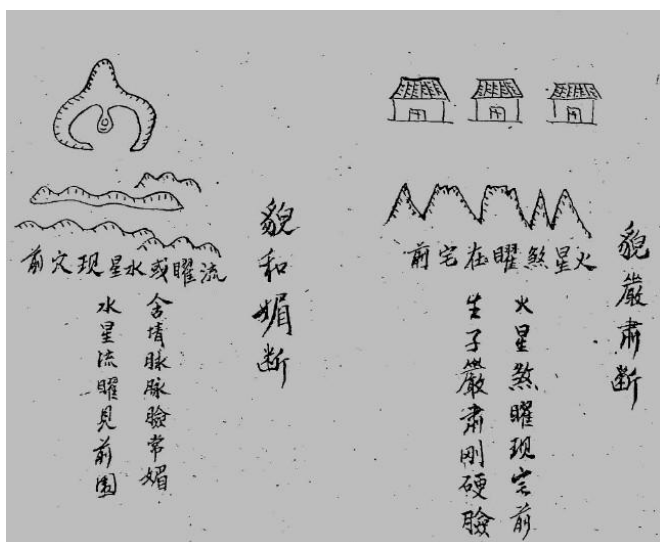 貌嚴肅断
火星煞曜在宅前
火星煞曜现宅前
生子嚴肅刚硬臉
貌和媚断
流曜或水星现穴前
含情脉脉臉常媚
水星流曜見前園